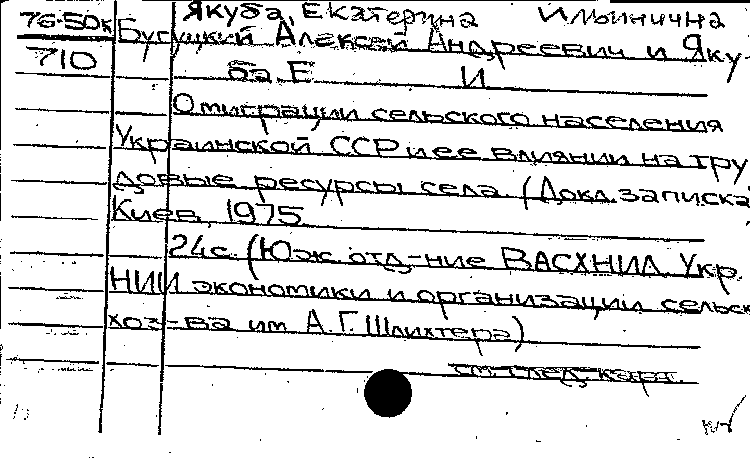 Якуба, Екатерина Ильинична
76-50к Бугуцкий Алексей Андреевич и Яку-
710 ба Е И
О миграции сельского населения
Украинской ССР и ее влиянии на тру
довые ресурсы села. (Докл. записка)
Киев, 1975
24с. (Юж. отд-ние ВАСХНИЛ. Укр.
НИИ экономики и организации сельск
хоз-ва им. А.Г. Шлихтера)
см. след. карт.